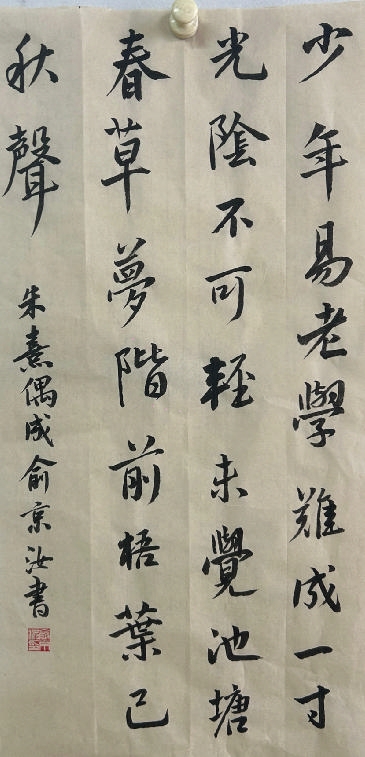 少年易老學難成一寸
光陰不可輕未覺池塘
春草夢階前梧葉已
秋聲
朱熹偶成俞京汝書